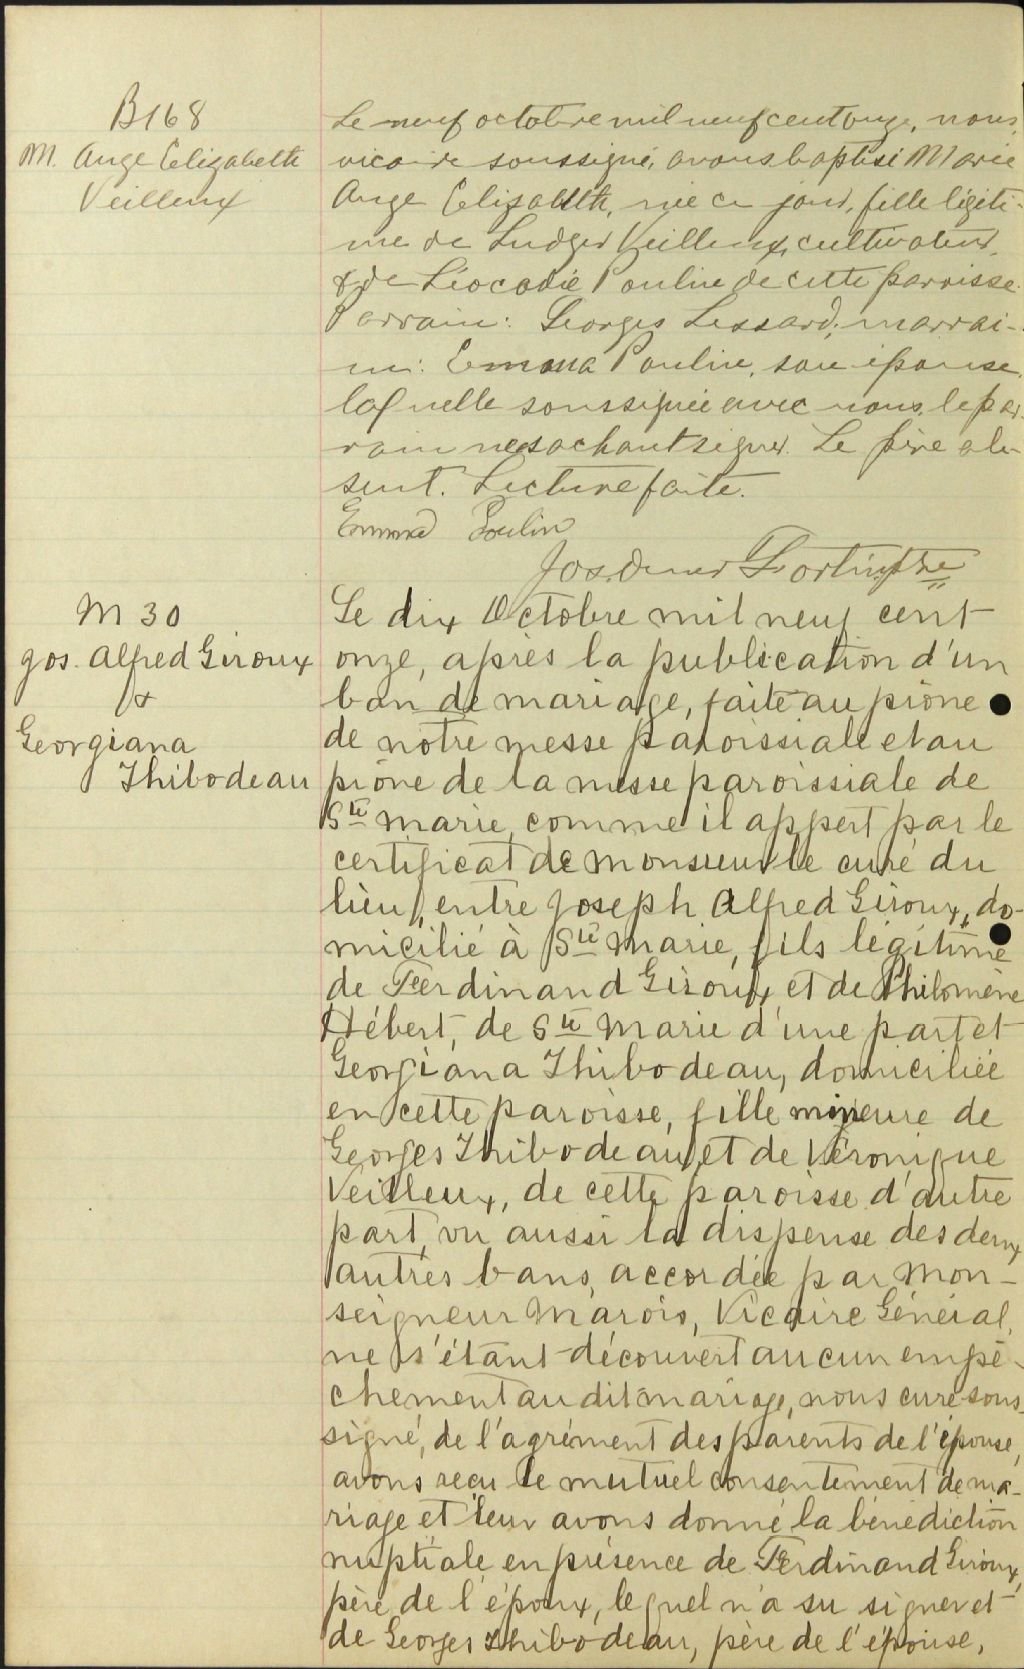 B168
M. Ange Elizabeth
Veilleux
Le neuf octobre mil neuf cent onze, nous,
vicaire soussigné, avons baptisé Marie
Ange Elizabeth, née ce jour, fille légiti-
me de Ludger Veilleux, cultivateur,
& de Léocadie Poulin de cette paroisse.
Parrain: Georges Lessard; marrai-
ne: Emma Poulin, son épouse,
laquelle soussignée avec nous, le par-
rain ne sachant signer. Le père ab-
sent. Lecture faite.
Emma Poulin
Jos. Omer Fortin, ptre
M 30
Jos. Alfred Giroux
&
Georgiana
Thibodeau
Le dix Octobre mil neuf cent
onze, après la publication d'un
ban de mariage, faite au prône
de notre messe paroissiale et au
prône de la messe paroissiale de
Ste Marie, comme il appert par le
certificat de monsieur le curé du
lieu, entre Joseph Alfred Giroux, do-
micilié à Ste Marie, fils légitime
de Ferdinand Giroux et de Philomène
Hébert, de Ste Marie d'une part et
Georgiana Thibodeau, domiciliée
en cette paroisse, fille mineure de
Georges Thibodeau et de Véronique
Veilleux, de cette paroisse d'autre
part, vu aussi la dispense des deux
autres bans, accordée par Mon-
seigneur Marois, Vicaire Général,
ne s'étant découvert aucun empê-
chement au dit mariage, nous curé sous-
signé, de l'agrément des parents de l'épouse,
avons reçu le mutuel consentement de ma-
riage et leur avons donné la bénédiction
nuptiale en présence de Ferdinand Giroux,
père de l'époux, lequel n'a su signer et
de Georges Thibodeau, père de l'épouse,